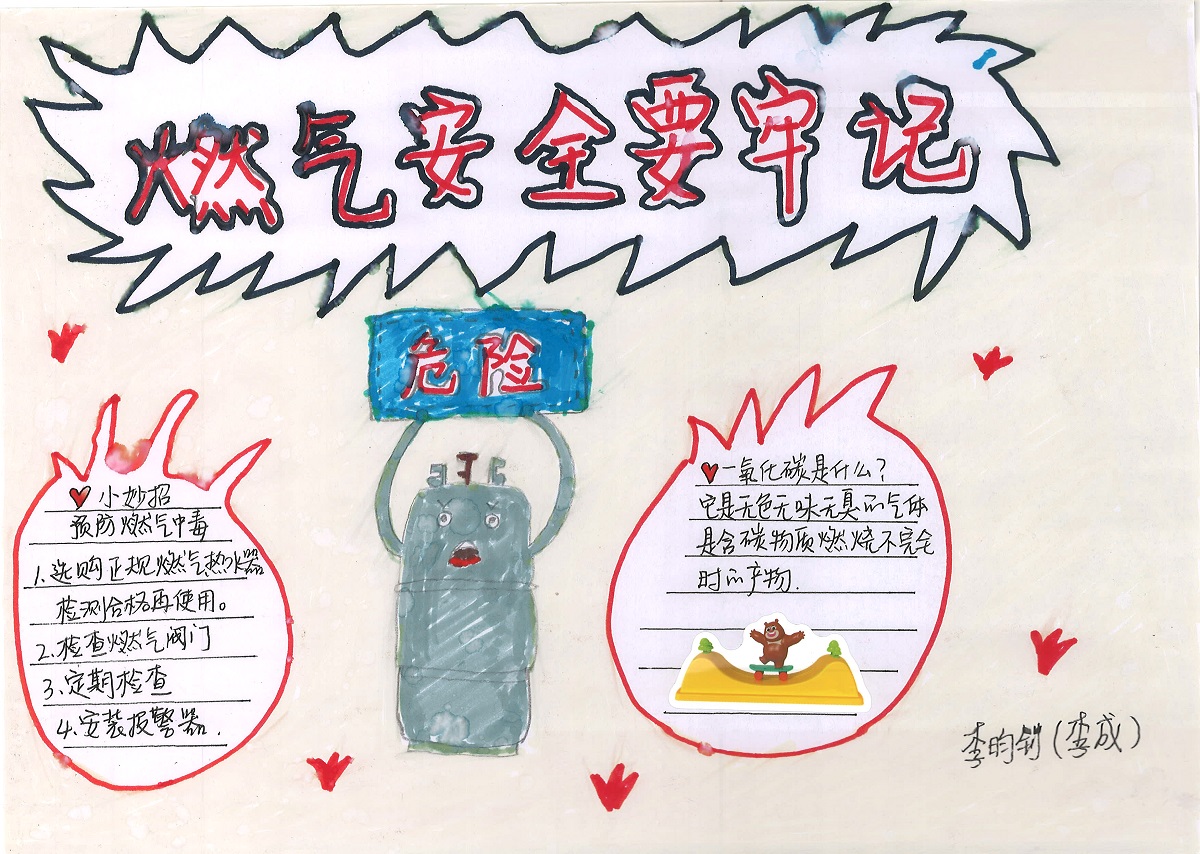 燃气安全要牢记
危险
小妙招
预防燃气中毒
1.选购正规燃气热水器
检测合格再使用。
2.检查燃气阀门
3.定期检查
4.安装报警器.
一氧化碳是什么?
它是无色无味无臭的气体
是含碳物质燃烧不完全
时的产物.
李昀钊(李成)